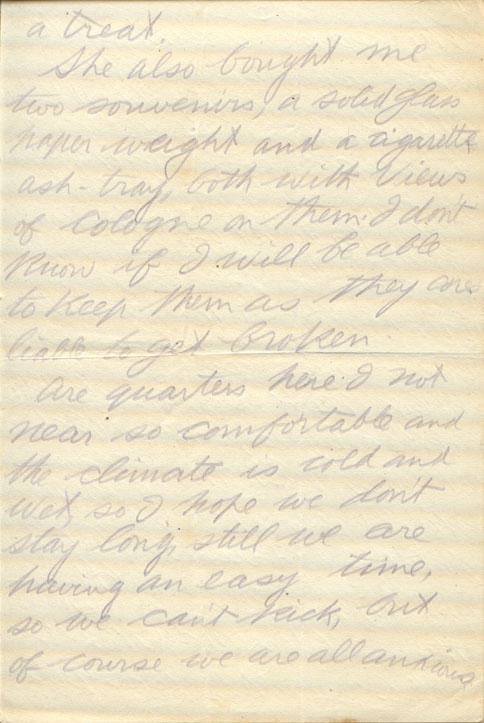 a treat.
She also bought me
two souvenirs, a solid glass
paper weight and a cigarette
ash-tray, both with views
of Cologne on them. I don't
know if I will be able
to keep them as they are
liable to get broken.
Are quarters here I not
near so comfortable and
the climate is cold and
wet, so I hope we don't
stay long, still we are
having an easy time,
so we can't kick, but
of course we are all anxious